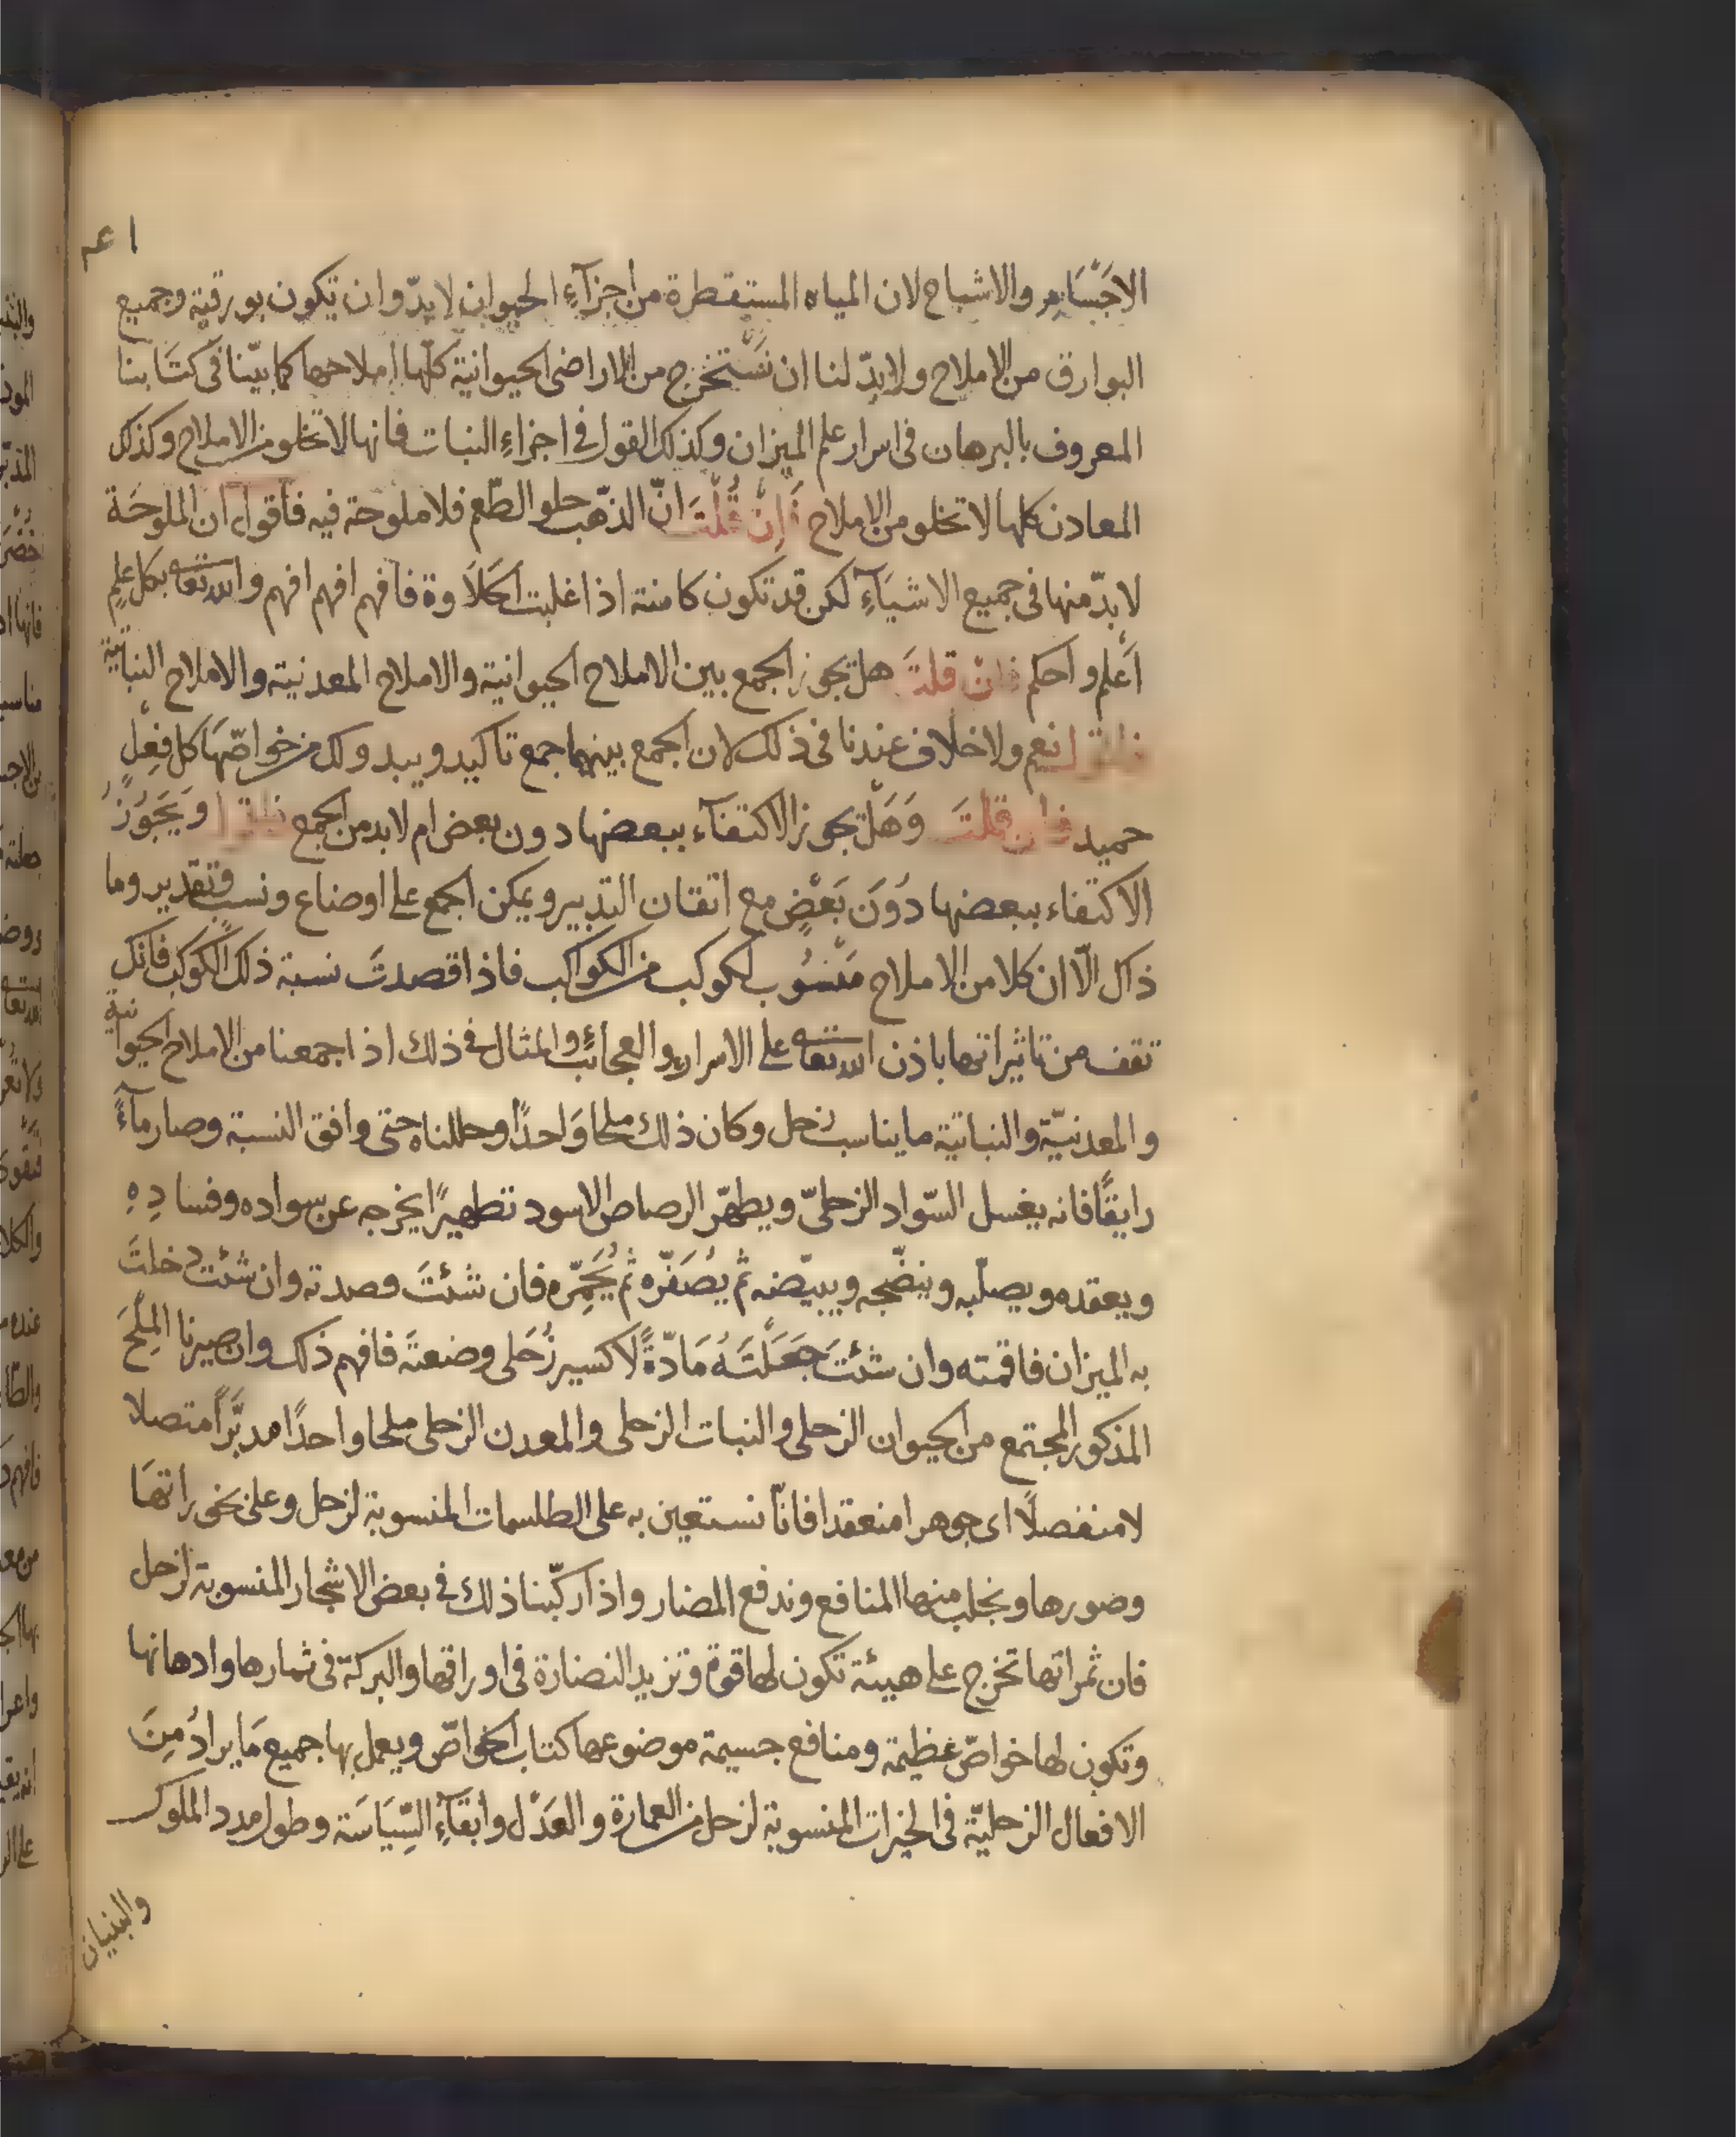 الاجْسَام والاشباح لان المياه المستقطرة من اجزآءِ الحيوان لابدّ وان تكون بورقية وجميع
البوارق من الاملاح ولابدّ لنا ان نَسْتخرج من الاراضى الحيوانية كلّها املاحها كما بيّنا فى كتَابنا
المعروف بالبرهان فى اسرار علم الميزان وكذلك القول فى اجزاءِ النبات فانها لا تخلو من الاملاح وكذلك
المعادن كلها لا تخلو من الاملاح فَإِنْ قُلْتَ انّ الذّهب حلو الطّعم فلا ملوحة فيه فاقول ان الملوحَة
لابدّ منها فى جميع الاشيَآءِ لكن قد تكون كامنة اذا غلبت الحَلاَوة فافهم افهم افهم والله تعا بكل علمٍ
اَعْلم واحكم فان قلتَ هل يجوز الجمع بين الاملاح الحيوانية والاملاح المعدنية والاملاح النباتية
نعم ولا خلاف عندنا فى ذلك لان الجمع بينهما جمع تاكيد ويبدو لك من خواصّهَا كل فِعْل
حميد فان قلتَ وَهَلْ يجوز الاكتفآء ببعضها دون بعض ام لابد من الجمع وَيَجُوزُ
الاكتفاء ببعضها دُونَ بَعْضٍ مع اتقان التدبير ويمكن الجمع على اوضاع ونسب وتقدير وما
ذاك الّا ان كلا من الاملاح مَنْسُوب لكوكب من الكواكب فاذا قصدتَ نسبة ذلك الكوكب فانك
تقف من تاثيراتها باذن الله تعا على الاسرار والعجائب والمثال فى ذلك اذا جمعنا من الاملاح الحيوانية
والمعدنيّة والنباتية ما يناسب زحل وكان ذلك ملحا وَاحدًا وحللناه حتى وافق النسبة وصار مآءً
رايقًا فانه يغسل السّواد الزحلىّ ويطهّر الرصاص الاسود تطهيرًا يخرجه عن سواده وفسادِهِ
ويعقده ويصلّبه وينضّجه ويبيّضه ثم يُصَفّره ثم يُحَمِّره فان شئتَ وان شئت دخلتَ
به الميزان فاقمته وان شئتَ جَعَلْتَهُ مَادّةً لاكسير زُحَلى وضعتَه فافهم ذلك وان صيرنا المِلْحَ
المذكور المجتمع من الحيوان الزحلى والنبات الزحلى والمعدن الزحلى ملحا واحدًا مدبَّرًا متصلا
لا منفصلًا اى جوهرا منعقدا فانّا نستعين به على الطلسمات المنسوبة لزحل وعلى بخوراتهَا
وصورها ونجلب منها المنافع وندفع المضار واذا ركّبنا ذلك فى بعض الاشجار المنسوبة لزحل
فان ثمراتها تخرج على هيئة تكون لها قوة وتزيد النضارة فى اوراقها والبركة فى ثمارها وادهانها
وتكون لها خواصّ عظيمة ومنافع جسيمة موضوعها كتاب الخواصّ ويعمل بها جميع مَا يرادُ مِنَ
الافعال الزحليّة فى الخيرات المنسوبة لزحل من العمارة والعَدْل وابقَآءِ السِّيَاسَة وطول مدد الملوك
والبنيان